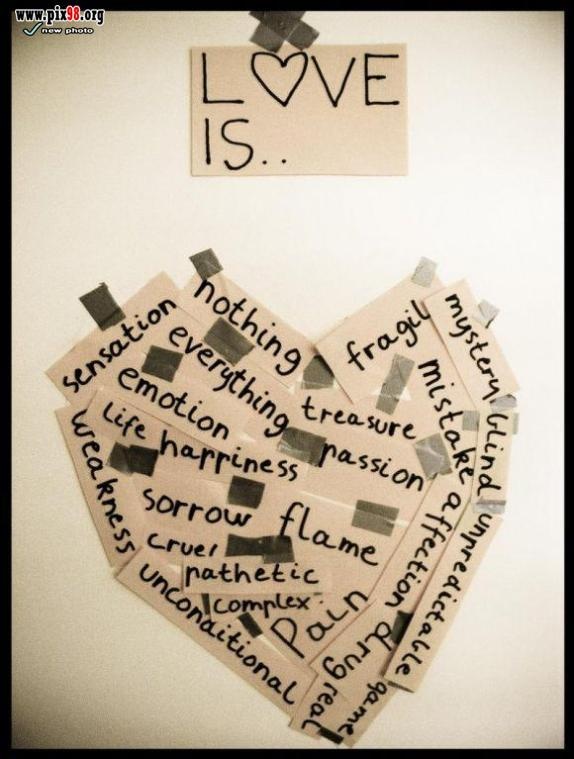 www.pix98.org
new photo
L♡VE
IS..
nothing
sensation
everything
fragil
mystery
emotion
treasure
mistake
blind
life
happiness
passion
weakness
sorrow
flame
affection
unpredictable
cruel
pathetic
unconditional
complex
pain
drug
real
game